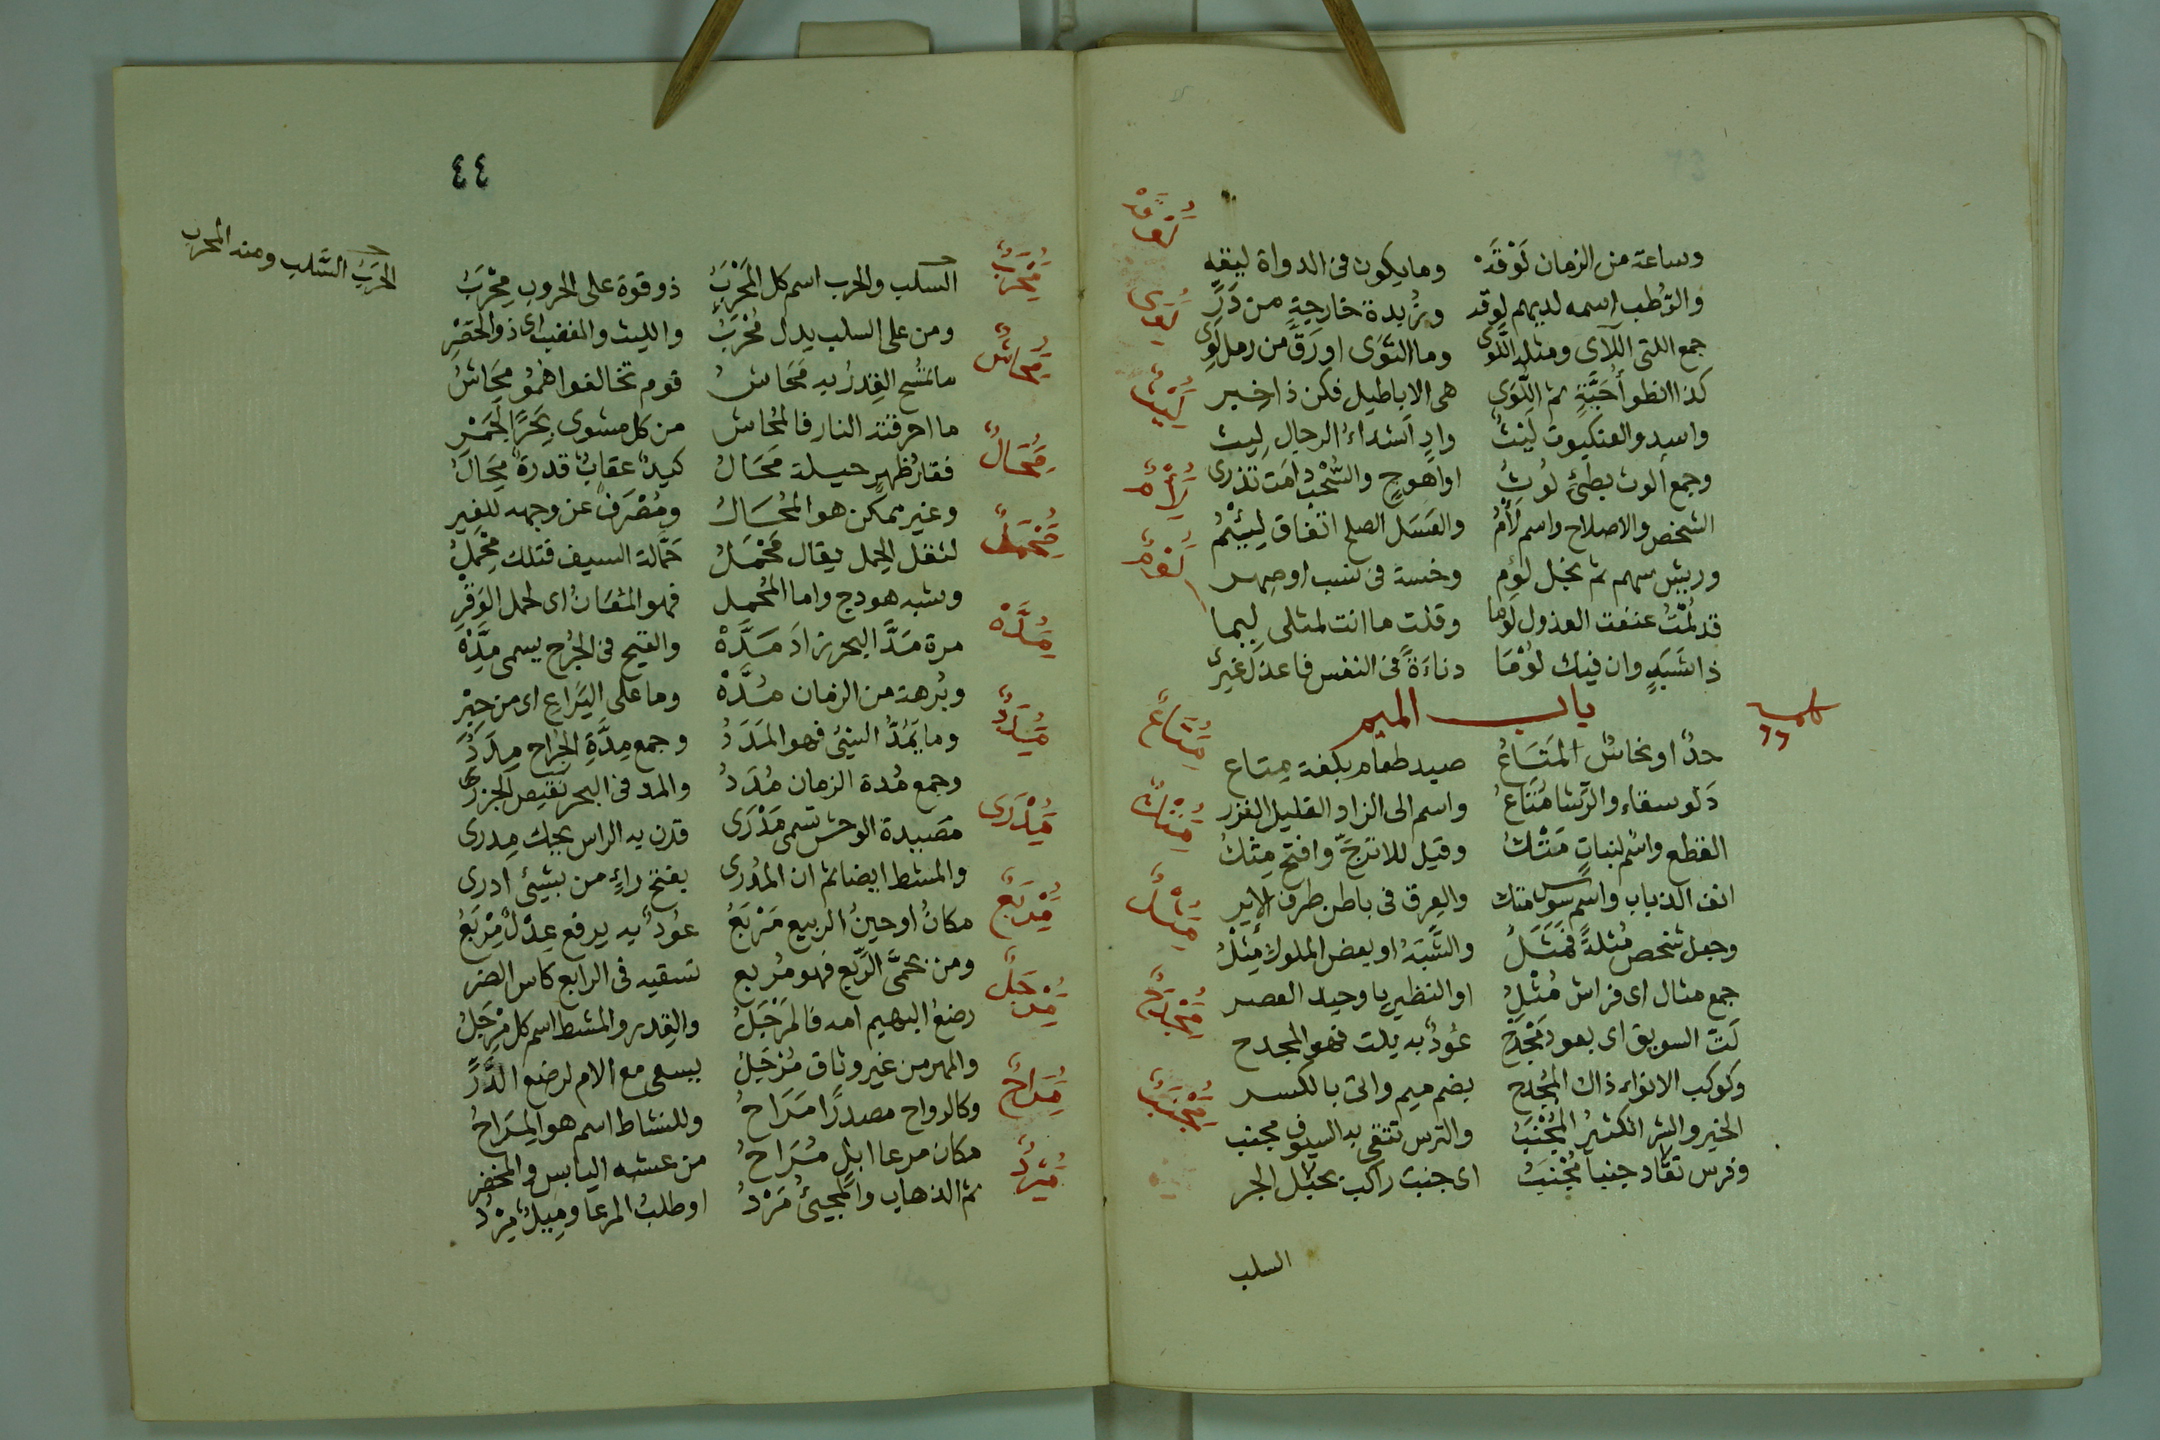 وساعة من الزمان لَوْقَه وما يكون فى الدواة ليقه
والرُّطب اسمه لديهم لوقه وزُبدة خارجة من دَرِّ
جمع اللتى اللآى ومثله اللَّوى وما التوَى او رَقَّ من رمل لِوى
هى الاباطيل فكن ذا خبر
واسد والعنكبوت لَيْثُ وادٍ اَشداءُ الرجال لِيث
وجمع ألوث بطئ لُوثُ او اهوج والسُّحْبُ
الشخص والاصلاح واسم لَأْمُ والعَسَل الصلح اتفاق لِيْئمُ
وريش سهم ثم بخل لؤم وخسة فى نسب او صهر
قد لُمْتُ عنفت العذول لَوْما وقلت ما انت لمثلى لِيما
ذا شَبَهٍ وان فيك لُؤْمَا دناءَةً فى النفس فاعدل غيرى
باب الميم
كلمه
٦٦
حدٌ او نحاسٌ المَتَاعُ صيد طعام بكفة مِتاع
دَلو سقاء والرِّشا مُتَاعُ واسم الى الزاد القليل الغزر
القطع واسم لنبات مَتْكُ وقيل للاترجّ وافتح مِتْكُ
انف الذباب واسم سوس متك والعِرق فى باطن طرف الاير
وجعل شخص مُثلةً فمَثَلُ والشَّبَهُ او بعض الملوك مِثْلُ
جمع مثال اى فراش مُثْلِ او النظير يا وحيد العصر
لَتّ السويق اى بعود مَجْدَح عُودٌ به يلت فهو المجدح
وكوكب الانواء ذاك المُجدح بضم ميم واتى بالكسر
الخير والشر الكثيرُ المَجْنَبُ والترس تتقى به السيوف مجنب
وفرس تقاد جنباً مُجْنَبُ اى جنب راكب بحبل الجر
لَوْقه
لَوى
لَيْثٌ
لَأْم
لَوْم
مَتَاعٌ
مَتْكٌ
مَثْلٌ
مَجْدَحٌ
مَجْنَبٌ
السلب
٤٤
الحَرَبُ السَّلب ومنه المحرب
السلب والحرب اسم كل المَحْرَبُ ذو قوة على الحروب مِحْرَبُ
ومن على السلب يدل مُحْرَبُ والليث والمغضب اى ذو الحَصْرِ
ما تمسُح القِدرُ به مَحَاشُ قوم تحالفوا همُوُ مِحَاشُ
ما احرقته النار فالمُحاش من كل مشوى بِحَرِّ الجَمْر
فقارُ ظهرٍ حيلة مَحَالُ كيدٌ عقابٌ قدرة مِحَالُ
وغير ممكن هو المُحَالُ ومُصْرَف عن وجهه للغير
لثقل الحِمل يقال مَحْمَلُ حَمَّالة السيف فتلك مِحْمَلُ
وشبه هودج واما المُحمل فهو المُعَانُ اى لحمل الوَقْرِ
مرة مَدَّ البحر زادَ مَدَّهْ والقيح فى الجُرح يسمى مِدَّهْ
وبُرهة من الزمان مُدَّهْ وما على اليَراع اى من حِبْر
وما يَمُدُّ الشئ فهو المَدَدُ وجمع مِدَّةِ الجُراح مِدَدُ
وجمع مُدة الزمان مُدَدُ والمد فى البحر نقيض الجزر
مَصْيَدة الوحش تسمى مَدْرَى قرن به الراس يحك مِدرى
والمشط ايضا ثم ان المُدرى بفتح راءٍ من بشئ ادرى
مكانُ او حينُ الربيع مَرْبَعُ عُودٌ به يرفع عِدْلٌ مِرْبَعُ
ومن بحمَّى الرِّبْع فهو مُربع تسقيه فى الرابع كاس الضر
رضعُ البهيم امه فالمَرْجَلُ والقِدر والمشط اسم كل مِرْجَلُ
والمهر من غير وثاق مُرْجَلُ يسعى مع الام لرضع الدَّرِّ
وكالرواح مصدرًا مَرَاحُ وللنشاط اسم هو المِرَاحُ
مكان مرعا ابلٍ مُرَاحُ من عشبه اليابس والمخضر
ثم الذهاب والمجيئُ مَرْدُ او طلبُ المرعا ومِيلٌ مِرْدُ
مَحْرَبٌ
مَحَاشٌ
مَحَالٌ
مَحْمَلٌ
مَدَّهْ
مَدَدٌ
مَدْرَى
مَرْبَعٌ
مَرْجَلٌ
مَرَاحٌ
مَرْدٌ